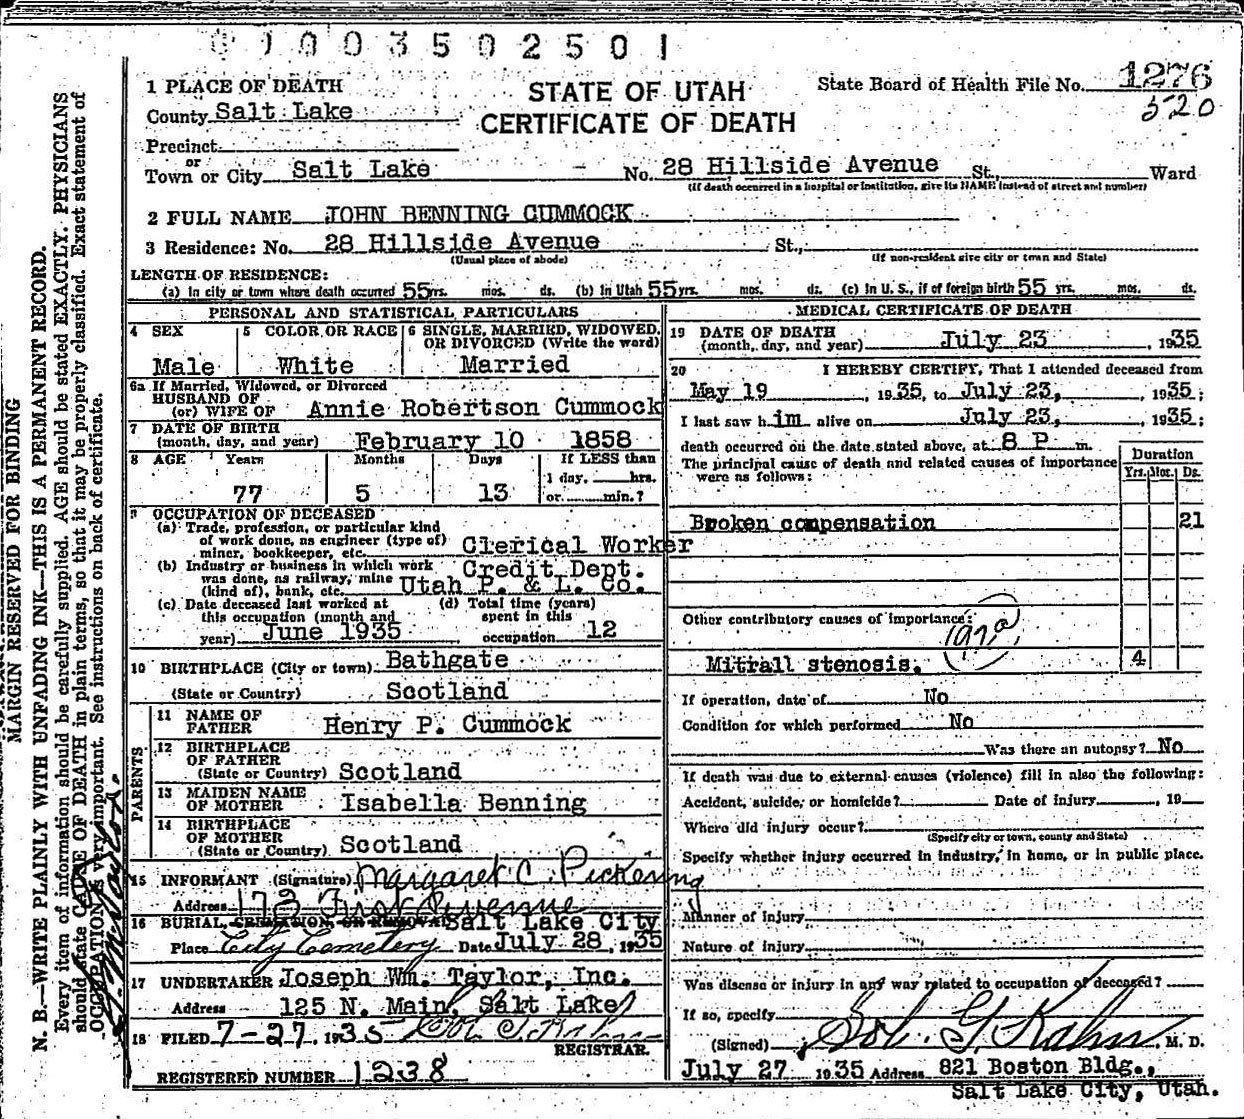 0 0 0 0 3 5 0 2 5 0 1
1 PLACE OF DEATH
STATE OF UTAH
CERTIFICATE OF DEATH
State Board of Health File No. 1276
520
County Salt Lake
Precinct
or
Town or City Salt Lake No. 28 Hillside Avenue St., Ward
(If death occurred in a hospital or institution, give its NAME instead of street and number)
2 FULL NAME JOHN BENNING CUMMOCK
3 Residence: No. 28 Hillside Avenue St.,
(Usual place of abode) (If non-resident give city or town and State)
LENGTH OF RESIDENCE:
(a) In city or town where death occurred 55 yrs. mos. ds. (b) In Utah 55 yrs. mos. ds. (c) In U. S., if of foreign birth 55 yrs. mos. ds.
PERSONAL AND STATISTICAL PARTICULARS
4 SEX
Male
5 COLOR OR RACE
White
6 SINGLE, MARRIED, WIDOWED, OR DIVORCED (Write the word)
Married
6a If Married, Widowed, or Divorced
HUSBAND OF
(or) WIFE OF Annie Robertson Cummock
7 DATE OF BIRTH
(month, day, and year) February 10 1858
8 AGE Years Months Days If LESS than
1 day, hrs.
77 5 13 or min.?
9 OCCUPATION OF DECEASED
(a) Trade, profession, or particular kind
of work done, as engineer (type of)
miner, bookkeeper, etc. Clerical Worker
(b) Industry or business in which work Credit Dept.
was done, as railway, mine
(kind of), bank, etc. Utah P. & L. Co.
(c) Date deceased last worked at
this occupation (month and
year) June 1935
(d) Total time (years)
spent in this
occupation 12
10 BIRTHPLACE (City or town) Bathgate
(State or Country) Scotland
PARENTS
11 NAME OF
FATHER Henry P. Cummock
12 BIRTHPLACE
OF FATHER
(State or Country) Scotland
13 MAIDEN NAME
OF MOTHER Isabella Benning
14 BIRTHPLACE
OF MOTHER
(State or Country) Scotland
15 INFORMANT (Signature) Margaret C. Pickering
Address 173 First Avenue
16 BURIAL, CREMATION, OR REMOVAL Salt Lake City
Place City Cemetery Date July 28, 1935
17 UNDERTAKER Joseph Wm. Taylor, Inc.
Address 125 N. Main, Salt Lake
18 FILED 7-27, 1935
REGISTRAR.
REGISTERED NUMBER 1238
MEDICAL CERTIFICATE OF DEATH
19 DATE OF DEATH
(month, day, and year) July 23, 1935
20 I HEREBY CERTIFY, That I attended deceased from
May 19, 1935, to July 23, 1935;
I last saw him alive on July 23, 1935;
death occurred on the date stated above, at 8 P m.
The principal cause of death and related causes of importance
were as follows:
Duration
Yrs. Mos. Ds.
Broken compensation 21
Other contributory causes of importance:
Mitrall stenosis. 4
If operation, date of No
Condition for which performed No
Was there an autopsy? No
If death was due to external causes (violence) fill in also the following:
Accident, suicide, or homicide? Date of injury , 19
Where did injury occur?
(Specify city or town, county and State)
Specify whether injury occurred in industry, in home, or in public place.
Manner of injury
Nature of injury
Was disease or injury in any way related to occupation of deceased?
If so, specify
(Signed) Sol. G. Kahn, M. D.
July 27 1935 Address 821 Boston Bldg.,
Salt Lake City, Utah.
MARGIN RESERVED FOR BINDING
N. B.—WRITE PLAINLY WITH UNFADING INK—THIS IS A PERMANENT RECORD.
Every item of information should be carefully supplied. AGE should be stated EXACTLY. PHYSICIANS
should state CAUSE OF DEATH in plain terms, so that it may be properly classified. Exact statement of
OCCUPATION is very important. See instructions on back of certificate.